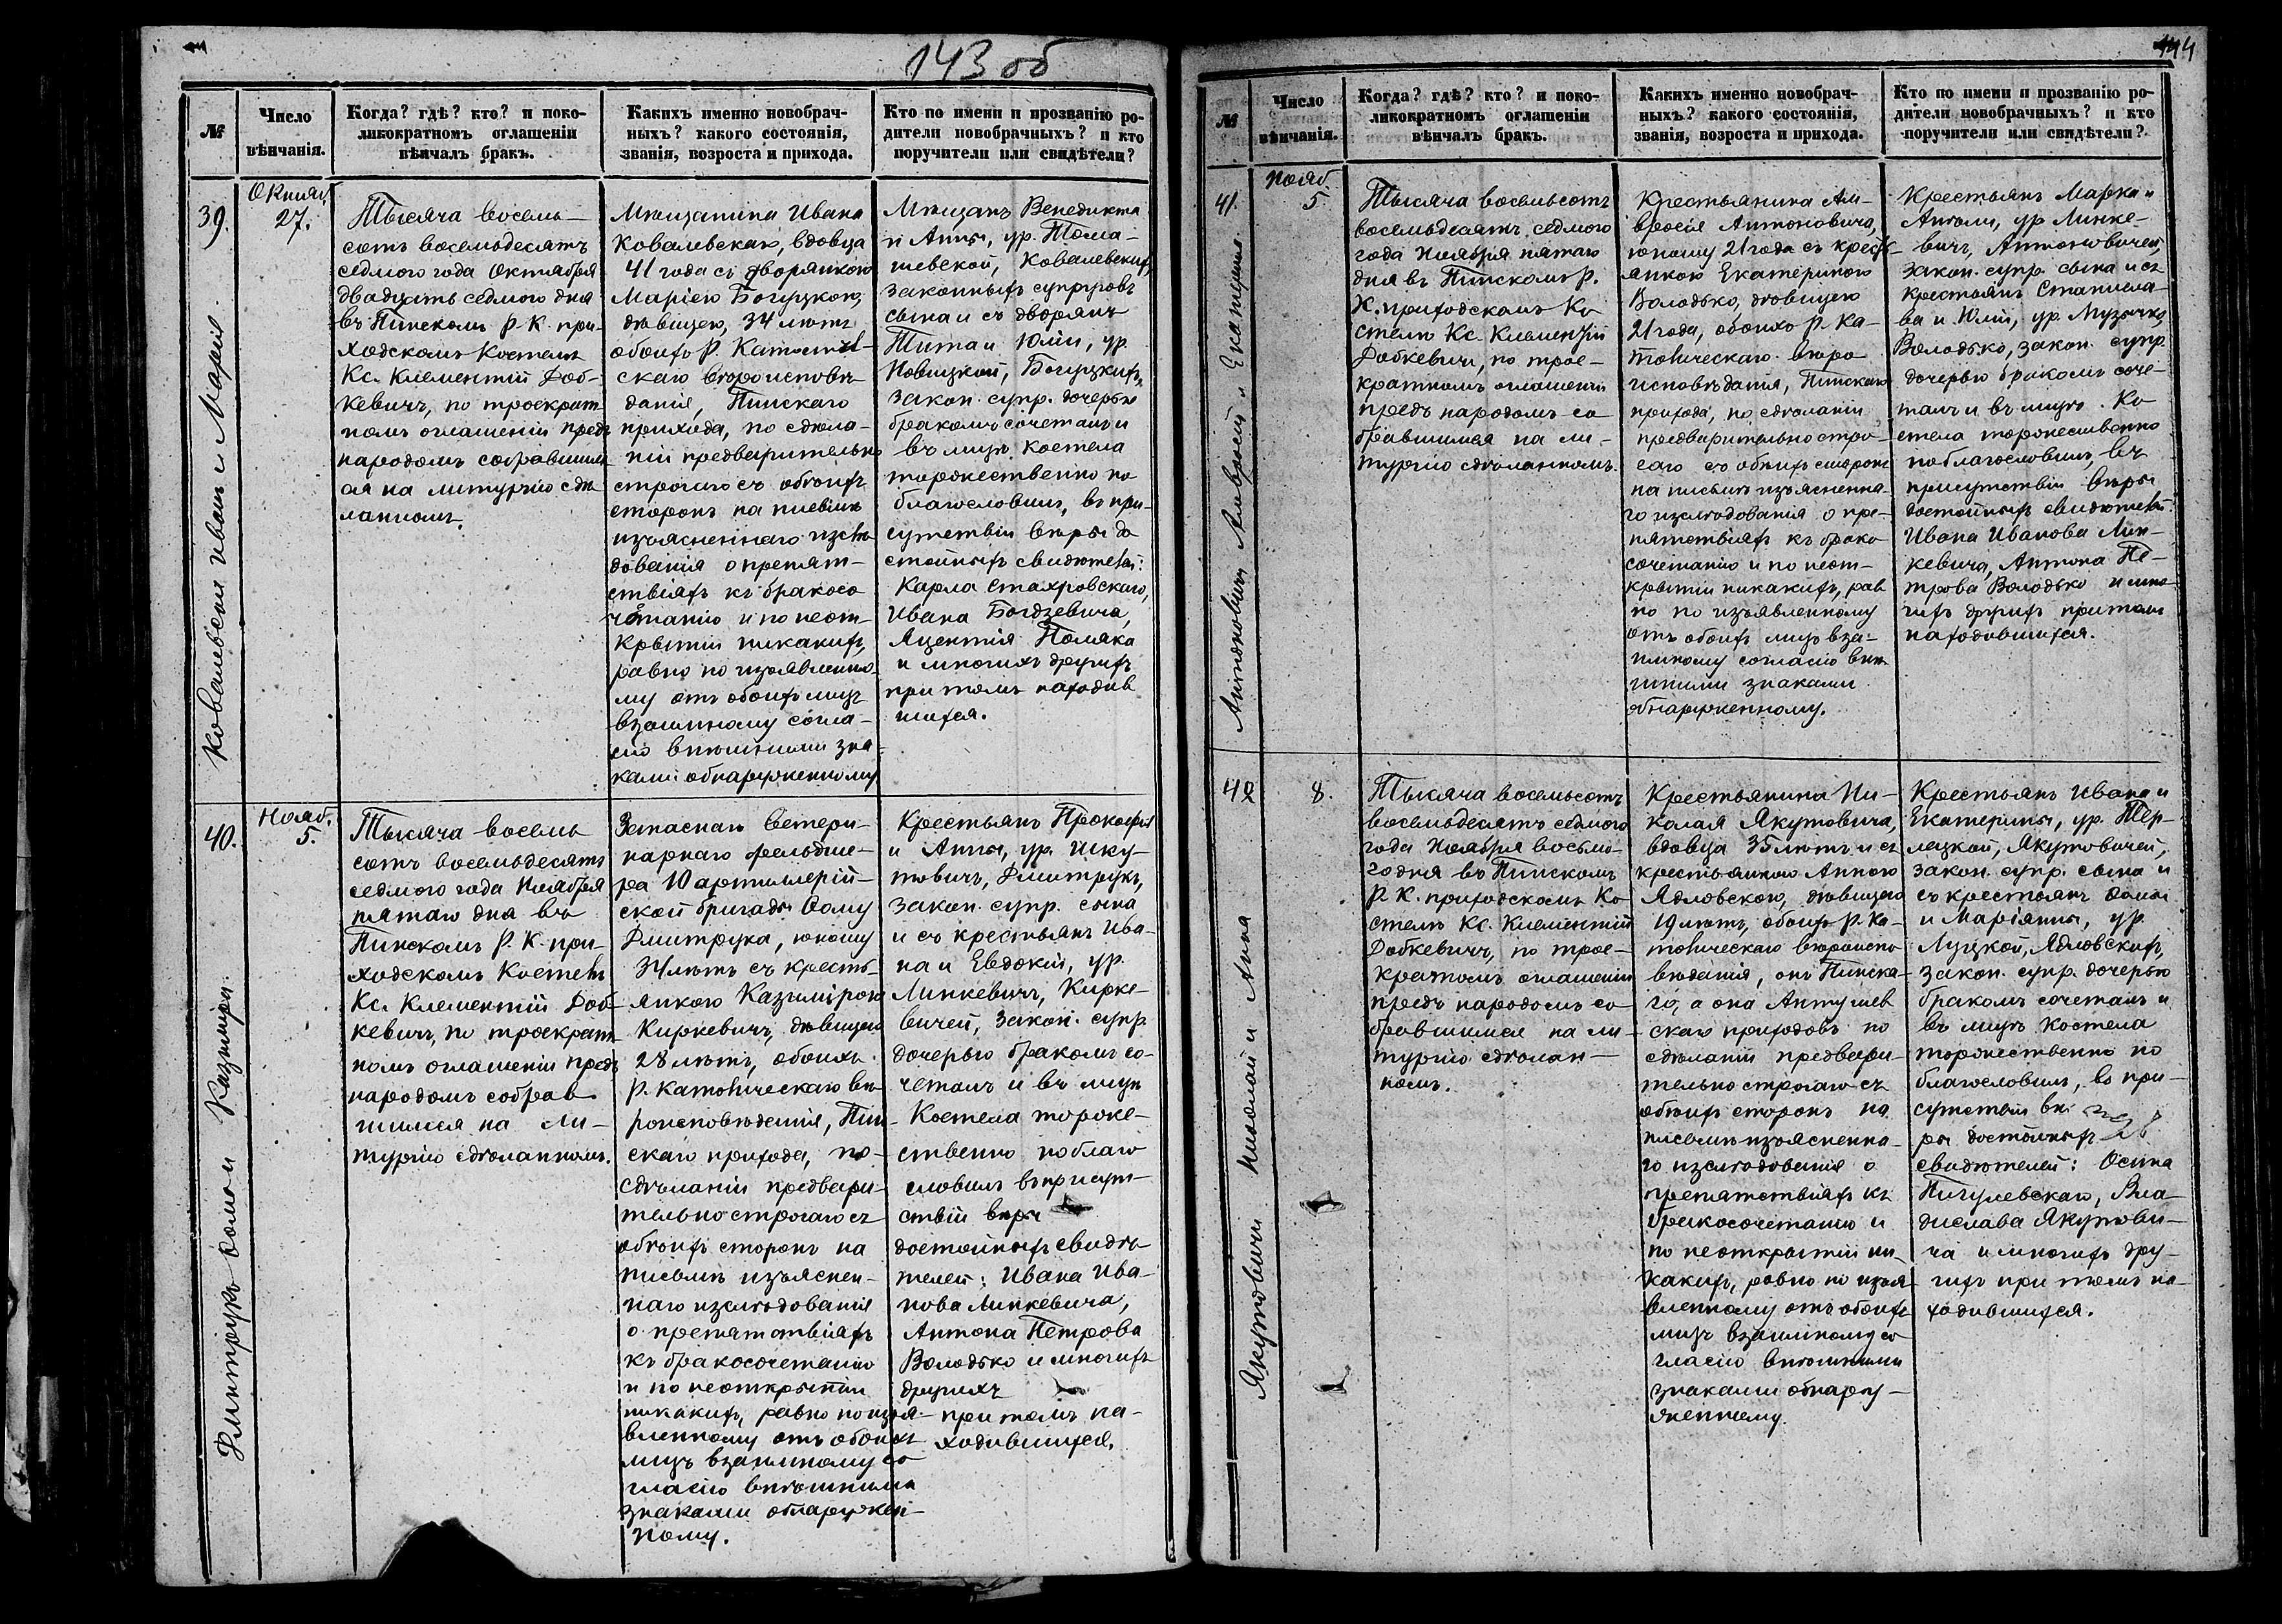 143 об
144
№
Число
вѣнчанія.
Когда? гдѣ? кто? и поко-
ликократномъ оглашеніи
вѣнчалъ бракъ.
Какихъ именно новобрач-
ныхъ? какого состоянія,
званія, возроста и прихода.
Кто по имени и прозванію ро-
дители новобрачныхъ? и кто
поручители или свидѣтели?
39.
Октяб.
27.
Ковалевскіи Иванъ и Марія.
Тысяча восемь-
сотъ восемьдесятъ
седмого года Октября
двадцать седмого дня
въ Пинскомъ Р. К. при-
ходскомъ Костелѣ
Кс. Климентій Доб-
кевичъ, по троекрат
номъ оглашеніи предъ
народомъ собравшим
ся на литургію сдѣ
ланномъ.
Мѣщанина Ивана
Ковалевскаго, вдовца
41 года съ дворянкою
Маріею Богуцкою,
дѣвицею, 34 лѣтъ
обоихъ Р. Католиче-
скаго вѣроисповѣ-
данія, Пинскаго
прихода, по сдѣла-
ніи предварительно
строгаго съ обѣихъ
сторонъ на письмѣ
изъясненнаго изслѣ
дованія о препят-
ствіяхъ къ бракосо
чѣтанію и по неот-
крытіи никакихъ,
равно по изъявленно-
му отъ обоихъ лицъ
взаимному согла-
сію внѣшними зна-
ками обнаруженному
Мѣщанъ Венедикта
и Анны, ур. Тома-
шевской, Ковалевскихъ,
законныхъ супруговъ
сына и съ дворянъ
Тита и Юліи, ур.
Новицкой, Богуцкихъ,
закон. супр. дочерью
бракомъ сочеталъ и
въ лицѣ Костела
торжественно по
благословилъ, въ при-
сутствіи вѣры до
стойныхъ свидѣтелей:
Карла Стахровскаго,
Ивана Богдзевича,
Яцентія Поляка
и многихъ другихъ
при томъ находив
шихся.
40.
Нояб.
5.
Дмитрукъ Ѳома и Казиміра.
Тысяча восемь
сотъ восемьдесятъ
седмого года Ноября
пятаго дня въ
Пинскомъ Р. К. при-
ходскомъ Костелѣ
Кс. Климентій Доб-
кевичъ, по троекрат
номъ оглашеніи предъ
народомъ собрав-
шимся на ли-
тургію сдѣланномъ.
Запаснаго ветери-
нарнаго фельдше-
ра 10 артиллерій-
ской бригады Ѳому
Дмитрука, юношу
34 лѣтъ съ кресть-
янкою Казимірою
Киркевичъ, дѣвицею
28 лѣтъ, обоихъ
Р. Католическаго вѣ-
роисповѣданія, Пин-
скаго прихода, по-
сдѣланіи предвари-
тельно строгаго съ
обѣихъ сторонъ на
письмѣ изъяснен-
наго изслѣдованія
о препятствіяхъ
къ бракосочетанію
и по неоткрытіи
никакихъ, равно по изъя-
вленному отъ обоихъ
лицъ взаимному со
гласію внѣшними
знаками обнаружен-
ному.
Крестьянъ Прокофія
и Анны, ур. Шку-
товичъ, Дмитрукъ,
закон. супр. сына
и съ крестьянъ Ива-
на и Евдокіи, ур.
Линкевичъ, Кирке-
вичей, закон. супр.
дочерью бракомъ со-
четалъ и въ лицѣ
Костела торже-
ственно поблаго
словилъ въ присут-
ствіи вѣры
достойныхъ свидѣ-
телей: Ивана Ива-
нова Линкевича,
Антона Петрова
Володько и многихъ
другихъ
при томъ на-
ходившихся.
№
Число
вѣнчанія.
Когда? гдѣ? кто? и поко-
ликократномъ оглашеніи
вѣнчалъ бракъ.
Какихъ именно новобрач-
ныхъ? какого состоянія,
званія, возроста и прихода.
Кто по имени и прозванію ро-
дители новобрачныхъ? и кто
поручители или свидѣтели?
41.
Нояб.
5.
Антоновичи Амвросій и Екатерина
Тысяча восемьсотъ
восемьдесятъ седмого
года Ноября пятаго
дня въ Пинскомъ Р.
К. приходскомъ Ко
стелѣ Кс. Климентій
Добкевичъ, по трое-
кратномъ оглашеніи
предъ народомъ со
бравшимся на ли-
тургію сдѣланномъ.
Крестьянина Ам-
вросія Антоновича,
юношу 21 года съ кресть-
янкою Екатериною
Володько, дѣвицею
21 года, обоихъ Р. Ка-
толическаго вѣро
исповѣданія, Пинскаго
прихода, по сдѣланіи
предварительно стро-
гаго съ обѣихъ сторонъ
на письмѣ изъясненна-
го изслѣдованія о пре-
пятствіяхъ къ брако
сочетанію и по неот-
крытіи никакихъ, рав
но по изъявленному
отъ обоихъ лицъ вза-
имному согласію внѣ-
шними знаками
обнаруженному.
Крестьянъ Марка и
Анѣли, ур. Линке-
вичъ, Антоновичей,
закон. супр. сына и съ
крестьянъ Станисла-
ва и Юліи, ур. Музычко,
Володько, закон. супр.
дочерью бракомъ соче-
талъ и въ лицѣ Ко
стела торжественно
поблагословилъ, въ
присутствіи вѣры
достойныхъ свидѣтелей:
Ивана Иванова Лин-
кевича, Антона Пе-
трова Володько и мно-
гихъ другихъ при томъ
находившихся.
42
8.
Якутовичи Николай и Анна
Тысяча восемьсотъ
восемьдесятъ седмого
года Ноября восьмо-
го дня въ Пинскомъ
Р. К. приходскомъ Ко
стелѣ Кс. Климентій
Добкевичъ, по трое-
кратномъ оглашеніи
предъ народомъ со-
бравшимся на ли-
тургію сдѣлан-
номъ.
Крестьянина Ни-
колая Якутовича,
вдовца 35 лѣтъ и съ
крестьянкою Анною
Ядловскою, дѣвицею
19 лѣтъ, обоихъ Р. Ка-
толическаго вѣроиспо
вѣданія, онъ Пинска-
го, а она Антушев
скаго приходовъ по
сдѣланіи предвари-
тельно строгаго съ
обѣихъ сторонъ на
письмѣ изъясненна-
го изслѣдованія о
препятствіяхъ къ
бракосочетанію и
по неоткрытіи ни-
какихъ, равно по изъя-
вленному отъ обоихъ
лицъ взаимному со
гласію внѣшними
знаками обнару-
женному.
Крестьянъ Ивана и
Екатерины, ур. Тер-
лецкой, Якутовичей,
закон. супр. сына и
съ крестьянъ Ѳомы
и Маріянны, ур.
Луцкой, Ядловскихъ,
закон. супр. дочерью
бракомъ сочеталъ и
въ лицѣ Костела
торжественно по
благословилъ, въ при-
сутствіи вѣ-
ры достойныхъ
свидѣтелей: Осипа
Пигулевскаго, Вла-
дислава Якутови-
ча и многихъ дру-
гихъ при томъ на-
ходившихся.